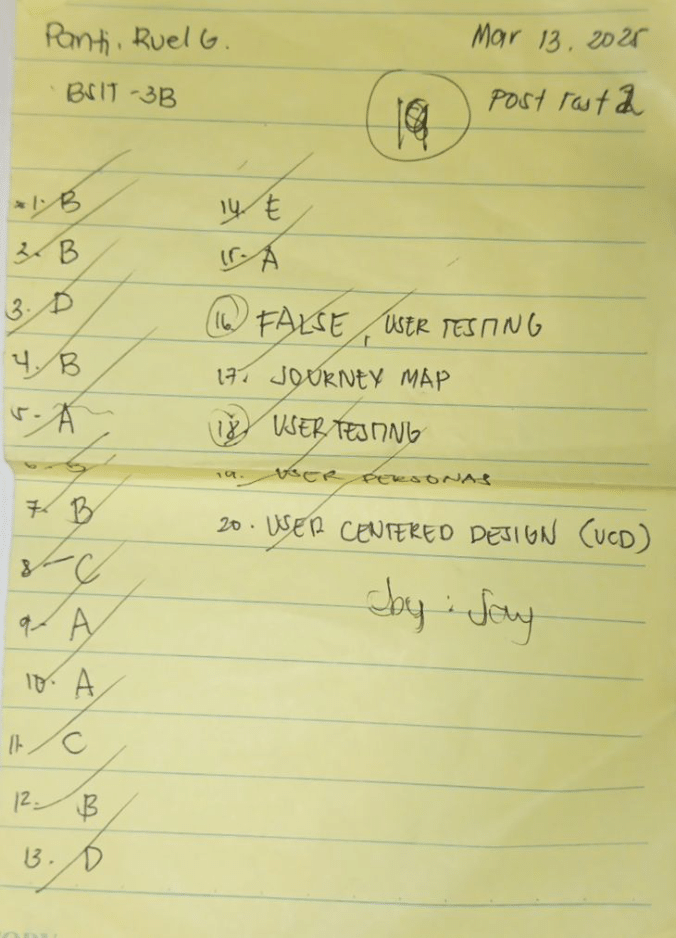 Panti, Ruel G.
Mar 13, 2025
BSIT - 3B
19
Post Test 2
1. B
2. B
3. D
4. B
5. A
7. B
8. C
9. A
10. A
11. C
12. B
13. D
14. E
15. A
16. FALSE, USER TESTING
17. JOURNEY MAP
18. USER TESTING
19. USER PERSONAS
20. USER CENTERED DESIGN (UCD)
by: Jay